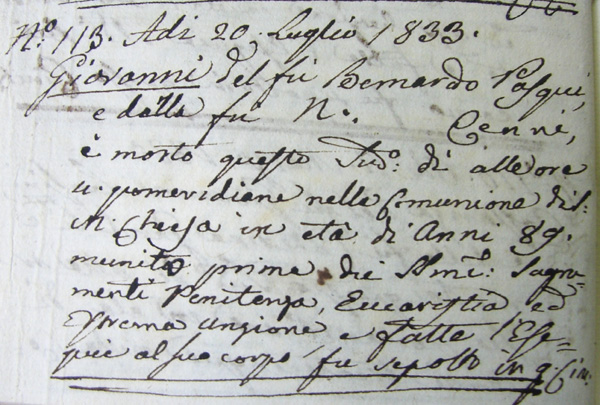 No. 113. Adi 20. Luglio 1833.
Giovanni del fù Bernardo Pasqui,
e dalla fù N. Cenni,
è morto questo Sudo. dì alle ore
pomeridiane nella Comunione di S.
M. Chiesa in età di Anni 89.
munito prima dei Smi. Sagra-
menti Penitenza, Eucarestia ed
Estrema Unzione e fatte l'Ese-
quie al suo corpo fù sepolto in q. Cim.